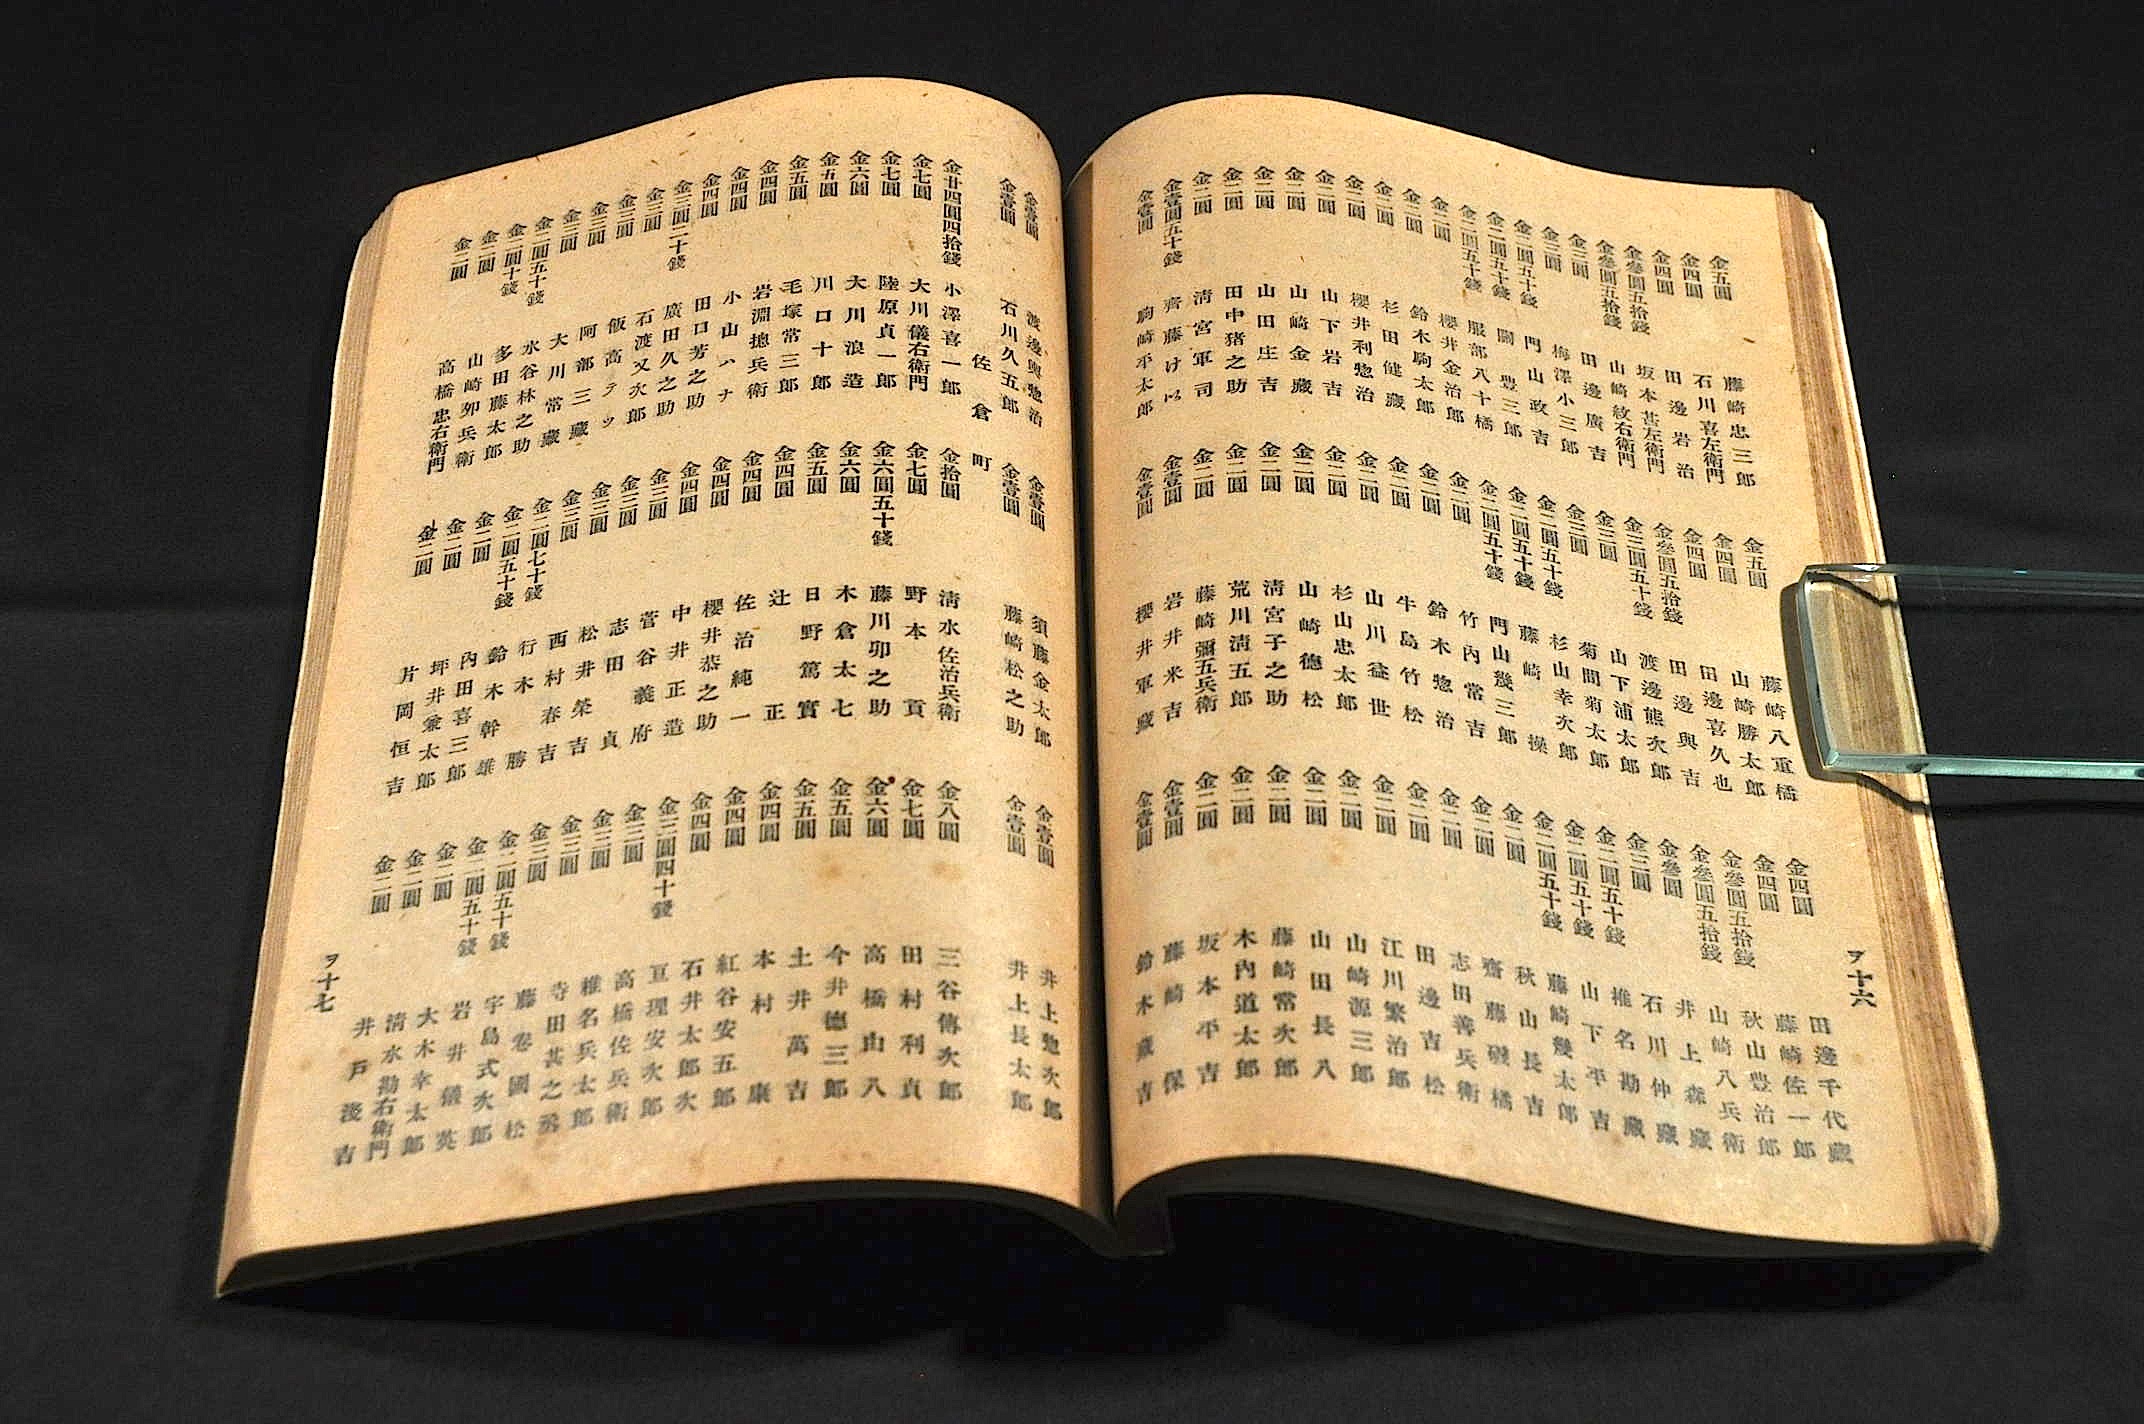 金五圓 藤崎忠三郎
金四圓 石川喜左衛門
金四圓 田邊岩治
金參圓五拾錢 坂本甚左衛門
金參圓五拾錢 山崎紋右衛門
金三圓 田邊廣吉
金三圓 梅澤小三郎
金二圓五十錢 門山政吉
金二圓五十錢 關豊三郎
金二圓五十錢 服部八十橘
金二圓 櫻井金治郎
金二圓 鈴木駒太郎
金二圓 杉田健藏
金二圓 櫻井利惣治
金二圓 山下岩吉
金二圓 山崎金藏
金二圓 山田庄吉
金二圓 田中猪之助
金二圓 清宮軍司
金壹圓五十錢 齊藤けい
金壹圓 駒崎平太郎
金五圓 藤崎八重橘
金四圓 山崎勝太郎
金四圓 田邊喜久也
金參圓五拾錢 田邊與吉
金三圓五十錢 渡邊熊次郎
金三圓 山下浦太郎
金三圓 菊間菊太郎
金二圓五十錢 杉山幸次郎
金二圓五十錢 藤崎操
金二圓五十錢 門山幾三郎
金二圓 竹內常吉
金二圓 鈴木惣治
金二圓 牛島竹松
金二圓 山川益世
金二圓 杉山忠太郎
金二圓 山崎德松
金二圓 清宮子之助
金二圓 荒川清五郎
金二圓 藤崎彌五兵衛
金壹圓 岩井米吉
金壹圓 櫻井軍藏
金四圓 田邊千代藏
金四圓 藤崎佐一郎
金參圓五拾錢 秋山豊治郎
金參圓五拾錢 山崎八兵衛
金參圓 井上森藏
金三圓 石川仲藏
金二圓五十錢 椎名勘藏
金二圓五十錢 山下平吉
金二圓五十錢 藤崎幾太郎
金二圓 秋山長吉
金二圓 齋藤磯橘
金二圓 志田善兵衛
金二圓 田邊吉松
金二圓 江川繁治郎
金二圓 山崎源三郎
金二圓 山田長八
金二圓 藤崎常次郎
金二圓 木內道太郎
金二圓 坂本平吉
金壹圓 藤崎保
金壹圓 鈴木藏吉
ヲ十六
金壹圓 渡邊與惣治
金壹圓 石川久五郎
金壹圓 須藤金太郎
金壹圓 藤崎松之助
金壹圓 井上惣次郎
金壹圓 井上長太郎
佐倉町
金廿四圓四拾錢 小澤喜一郎
金七圓 大川儀右衛門
金七圓 陸原貞一郎
金六圓 大川浪造
金五圓 川口十郎
金五圓 毛塚常三郎
金四圓 岩淵摠兵衛
金四圓 小山ハナ
金四圓 田口芳之助
金三圓二十錢 廣田久之助
金三圓 石渡又次郎
金三圓 飯高テツ
金三圓 阿部三藏
金三圓 大川常藏
金二圓五十錢 水谷林之助
金二圓十錢 多田藤太郎
金二圓 山崎夘兵衛
金二圓 高橋忠右衛門
金拾圓 清水佐治兵衛
金七圓 野本貢
金六圓五十錢 藤川卯之助
金六圓 木倉太七
金五圓 日野篤實
金四圓 辻正
金四圓 佐治純一
金四圓 櫻井恭之助
金四圓 中井正造
金三圓 菅谷義府
金三圓 志田貞
金三圓 松井榮吉
金三圓 西村春吉
金二圓七十錢 行木勝
金二圓五十錢 鈴木幹雄
金二圓 內田喜三郎
金二圓 坪井兼太郎
金二圓 片岡恒吉
金八圓 三谷傳次郎
金七圓 田村利貞
金六圓 高橋由八
金五圓 今井德三郎
金五圓 土井萬吉
金四圓 本村康
金四圓 紅谷安五郎
金四圓 石井太郎次
金三圓四十錢 亘理安次郎
金三圓 高橋佐兵衛
金三圓 椎名兵太郎
金三圓 寺田甚之丞
金三圓 藤卷國松
金二圓五十錢 宇島式次郎
金二圓五十錢 岩井儀英
金二圓 大木幸太郎
金二圓 清水勘右衛門
金二圓 井戶淺吉
ヲ十七